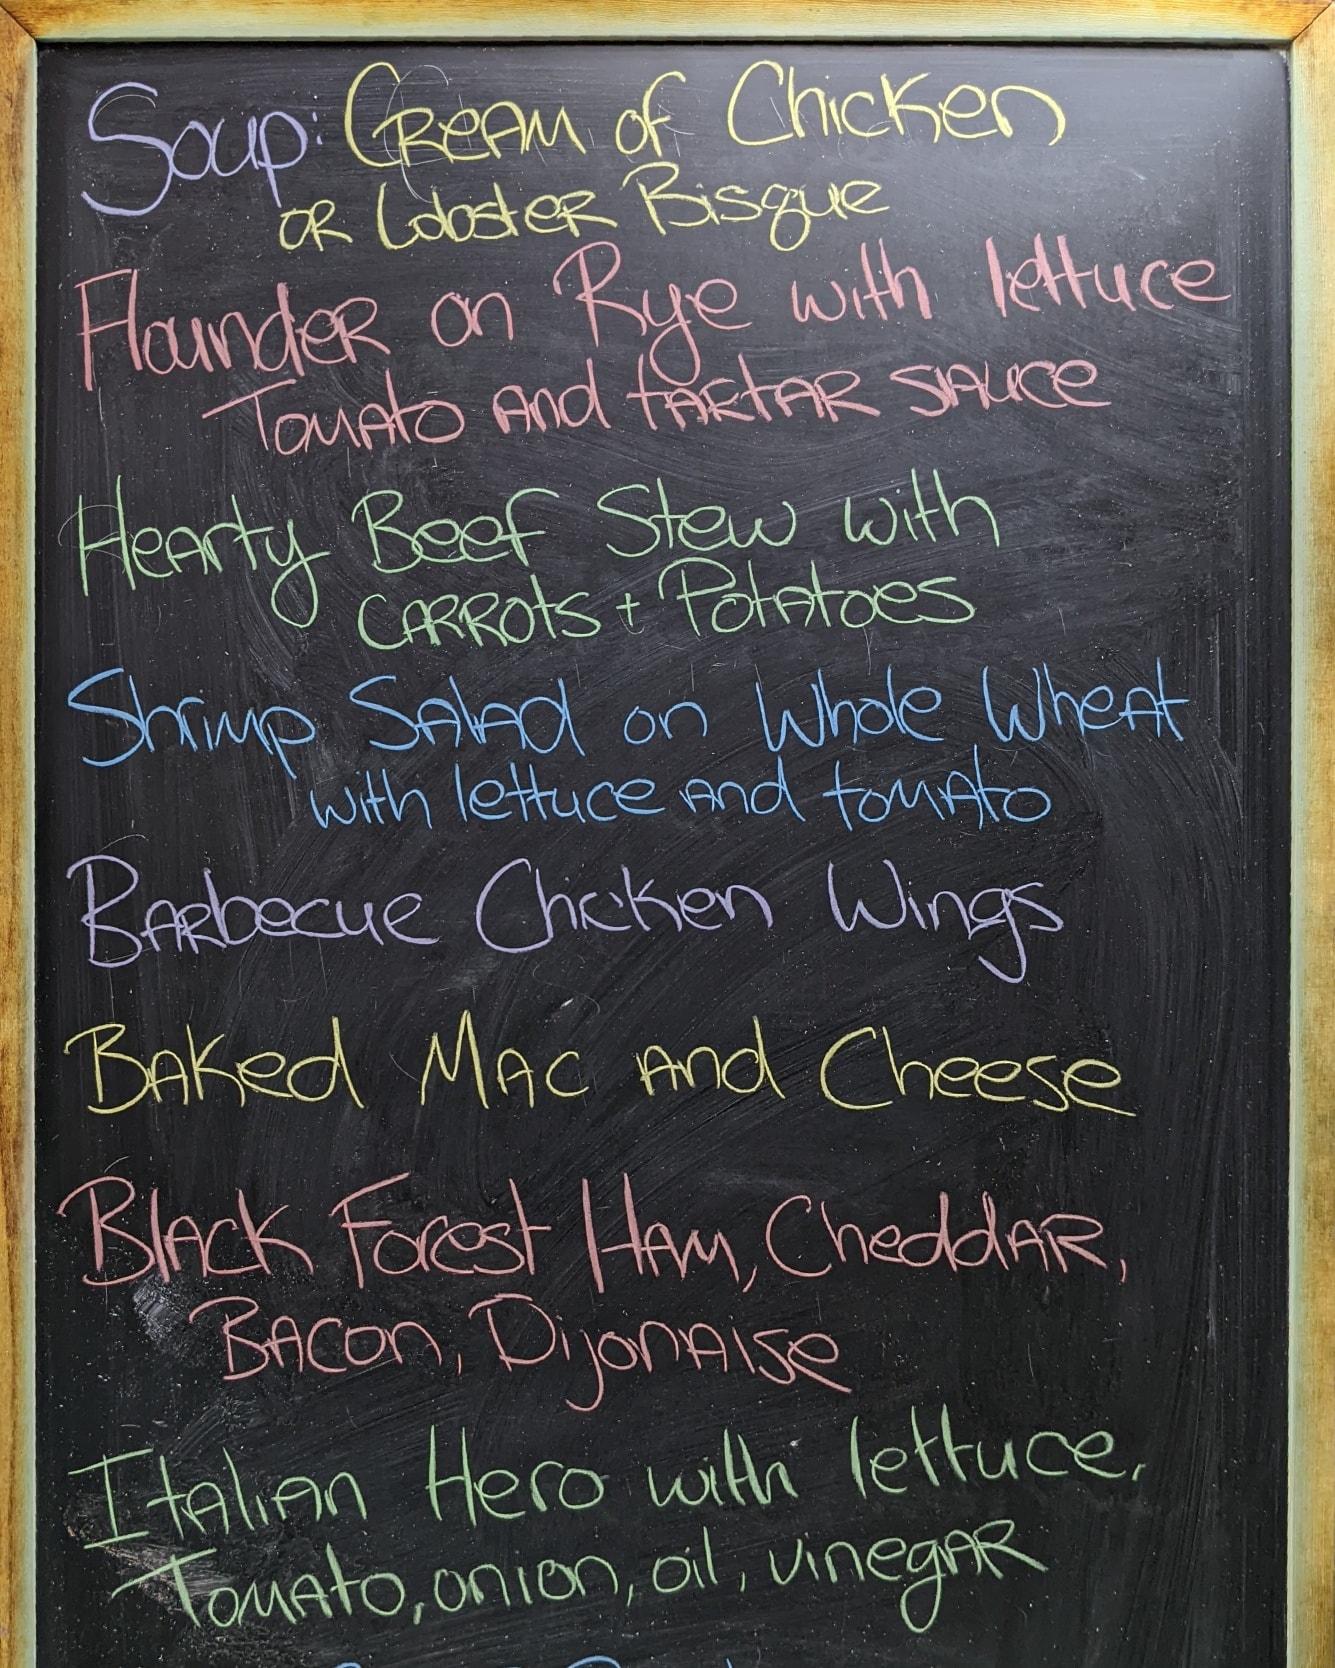 Soup: Cream of Chicken
or Lobster Bisque
Flounder on Rye with lettuce
Tomato and tartar sauce
Hearty Beef Stew with
carrots + Potatoes
Shrimp Salad on Whole Wheat
with lettuce and tomato
Barbecue Chicken Wings
Baked Mac and Cheese
Black Forest Ham, Cheddar,
Bacon, Dijonaise
Italian Hero with lettuce,
Tomato, onion, oil, vinegar